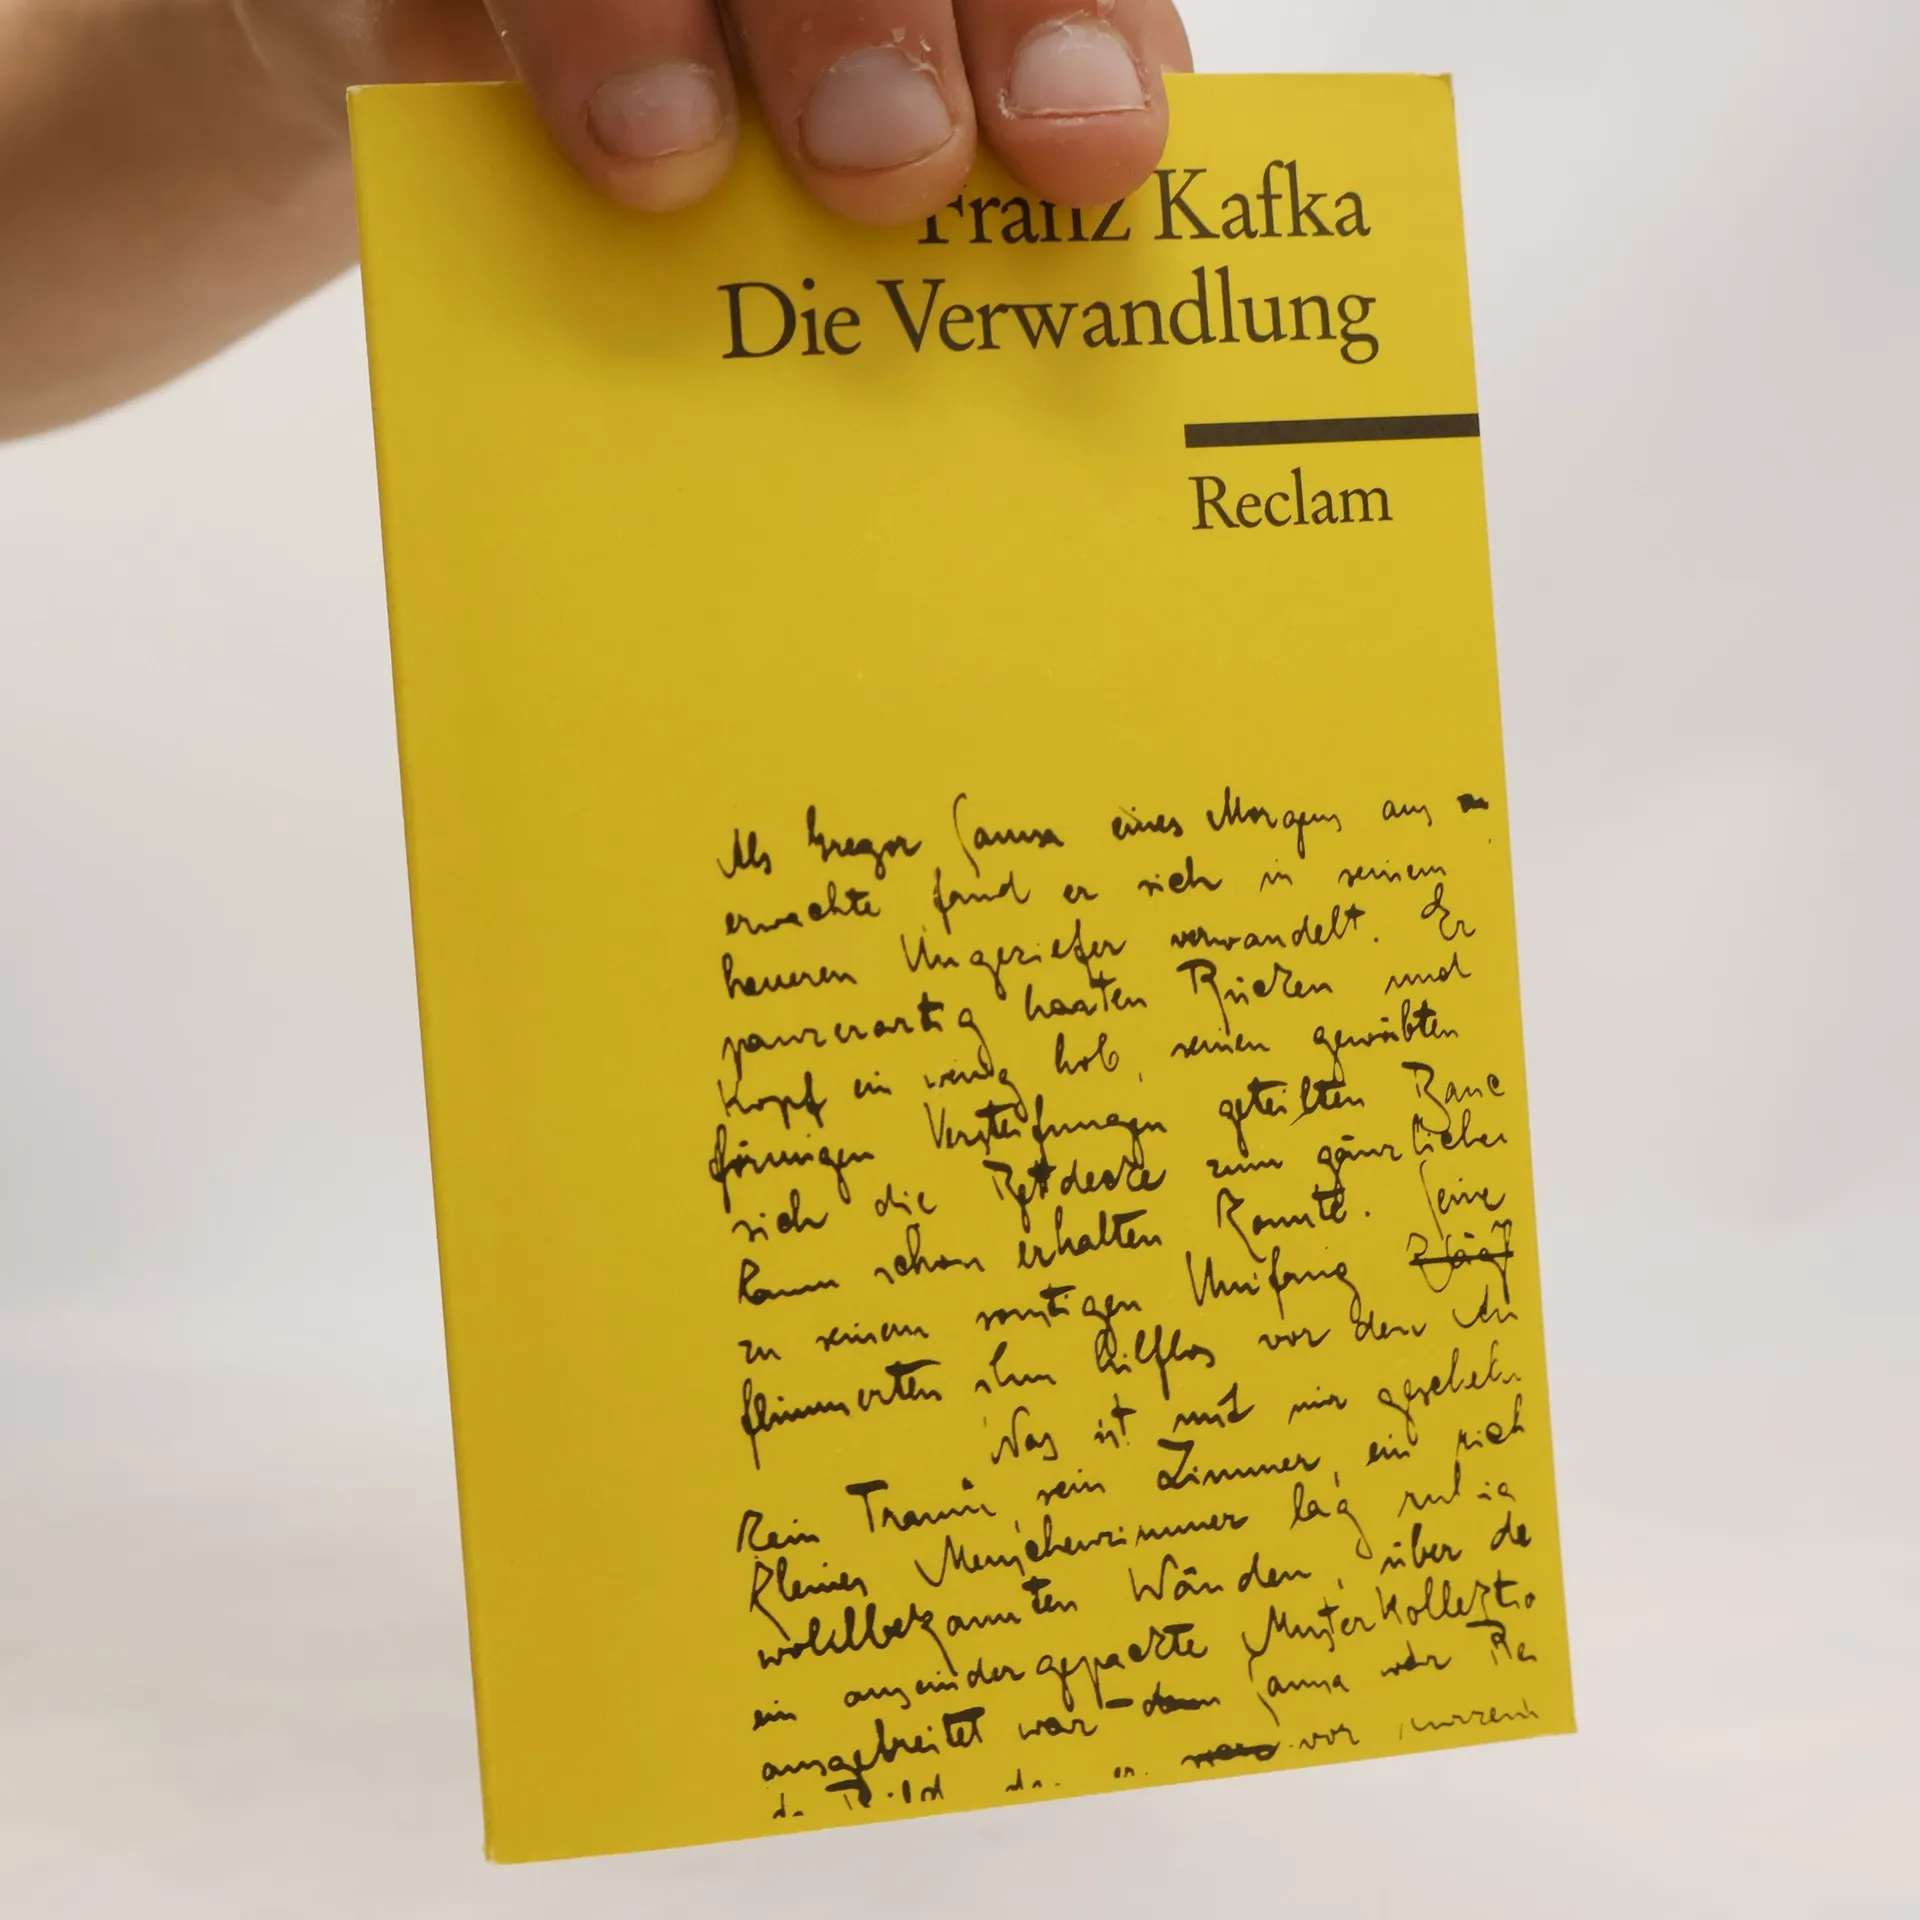 Franz Kafka
Die Verwandlung
Reclam
Als Gregor Samsa eines Morgens aus
erwachte fand er sich in seinem
heueren Ungeziefer verwandelt. Er
panzerartig harten Rücken und
Kopf ein wenig hob, seinen gewölbten
förmigen Versteifungen geteilten Bauc
sich die Bettdecke zum gänzlichen
kaum schon erhalten konnte. Seine
zu seinem sonstigen Umfang
flimmerten ihm hilflos vor den Au
Was ist mit mir geschehn
Kein Traum, sein Zimmer, ein rich
kleines Menschenzimmer lag ruhig
wohlbekannten Wänden, über de
ein auseinandergepackte Musterkollektio
ausgebreitet war – Samsa war Re
vor